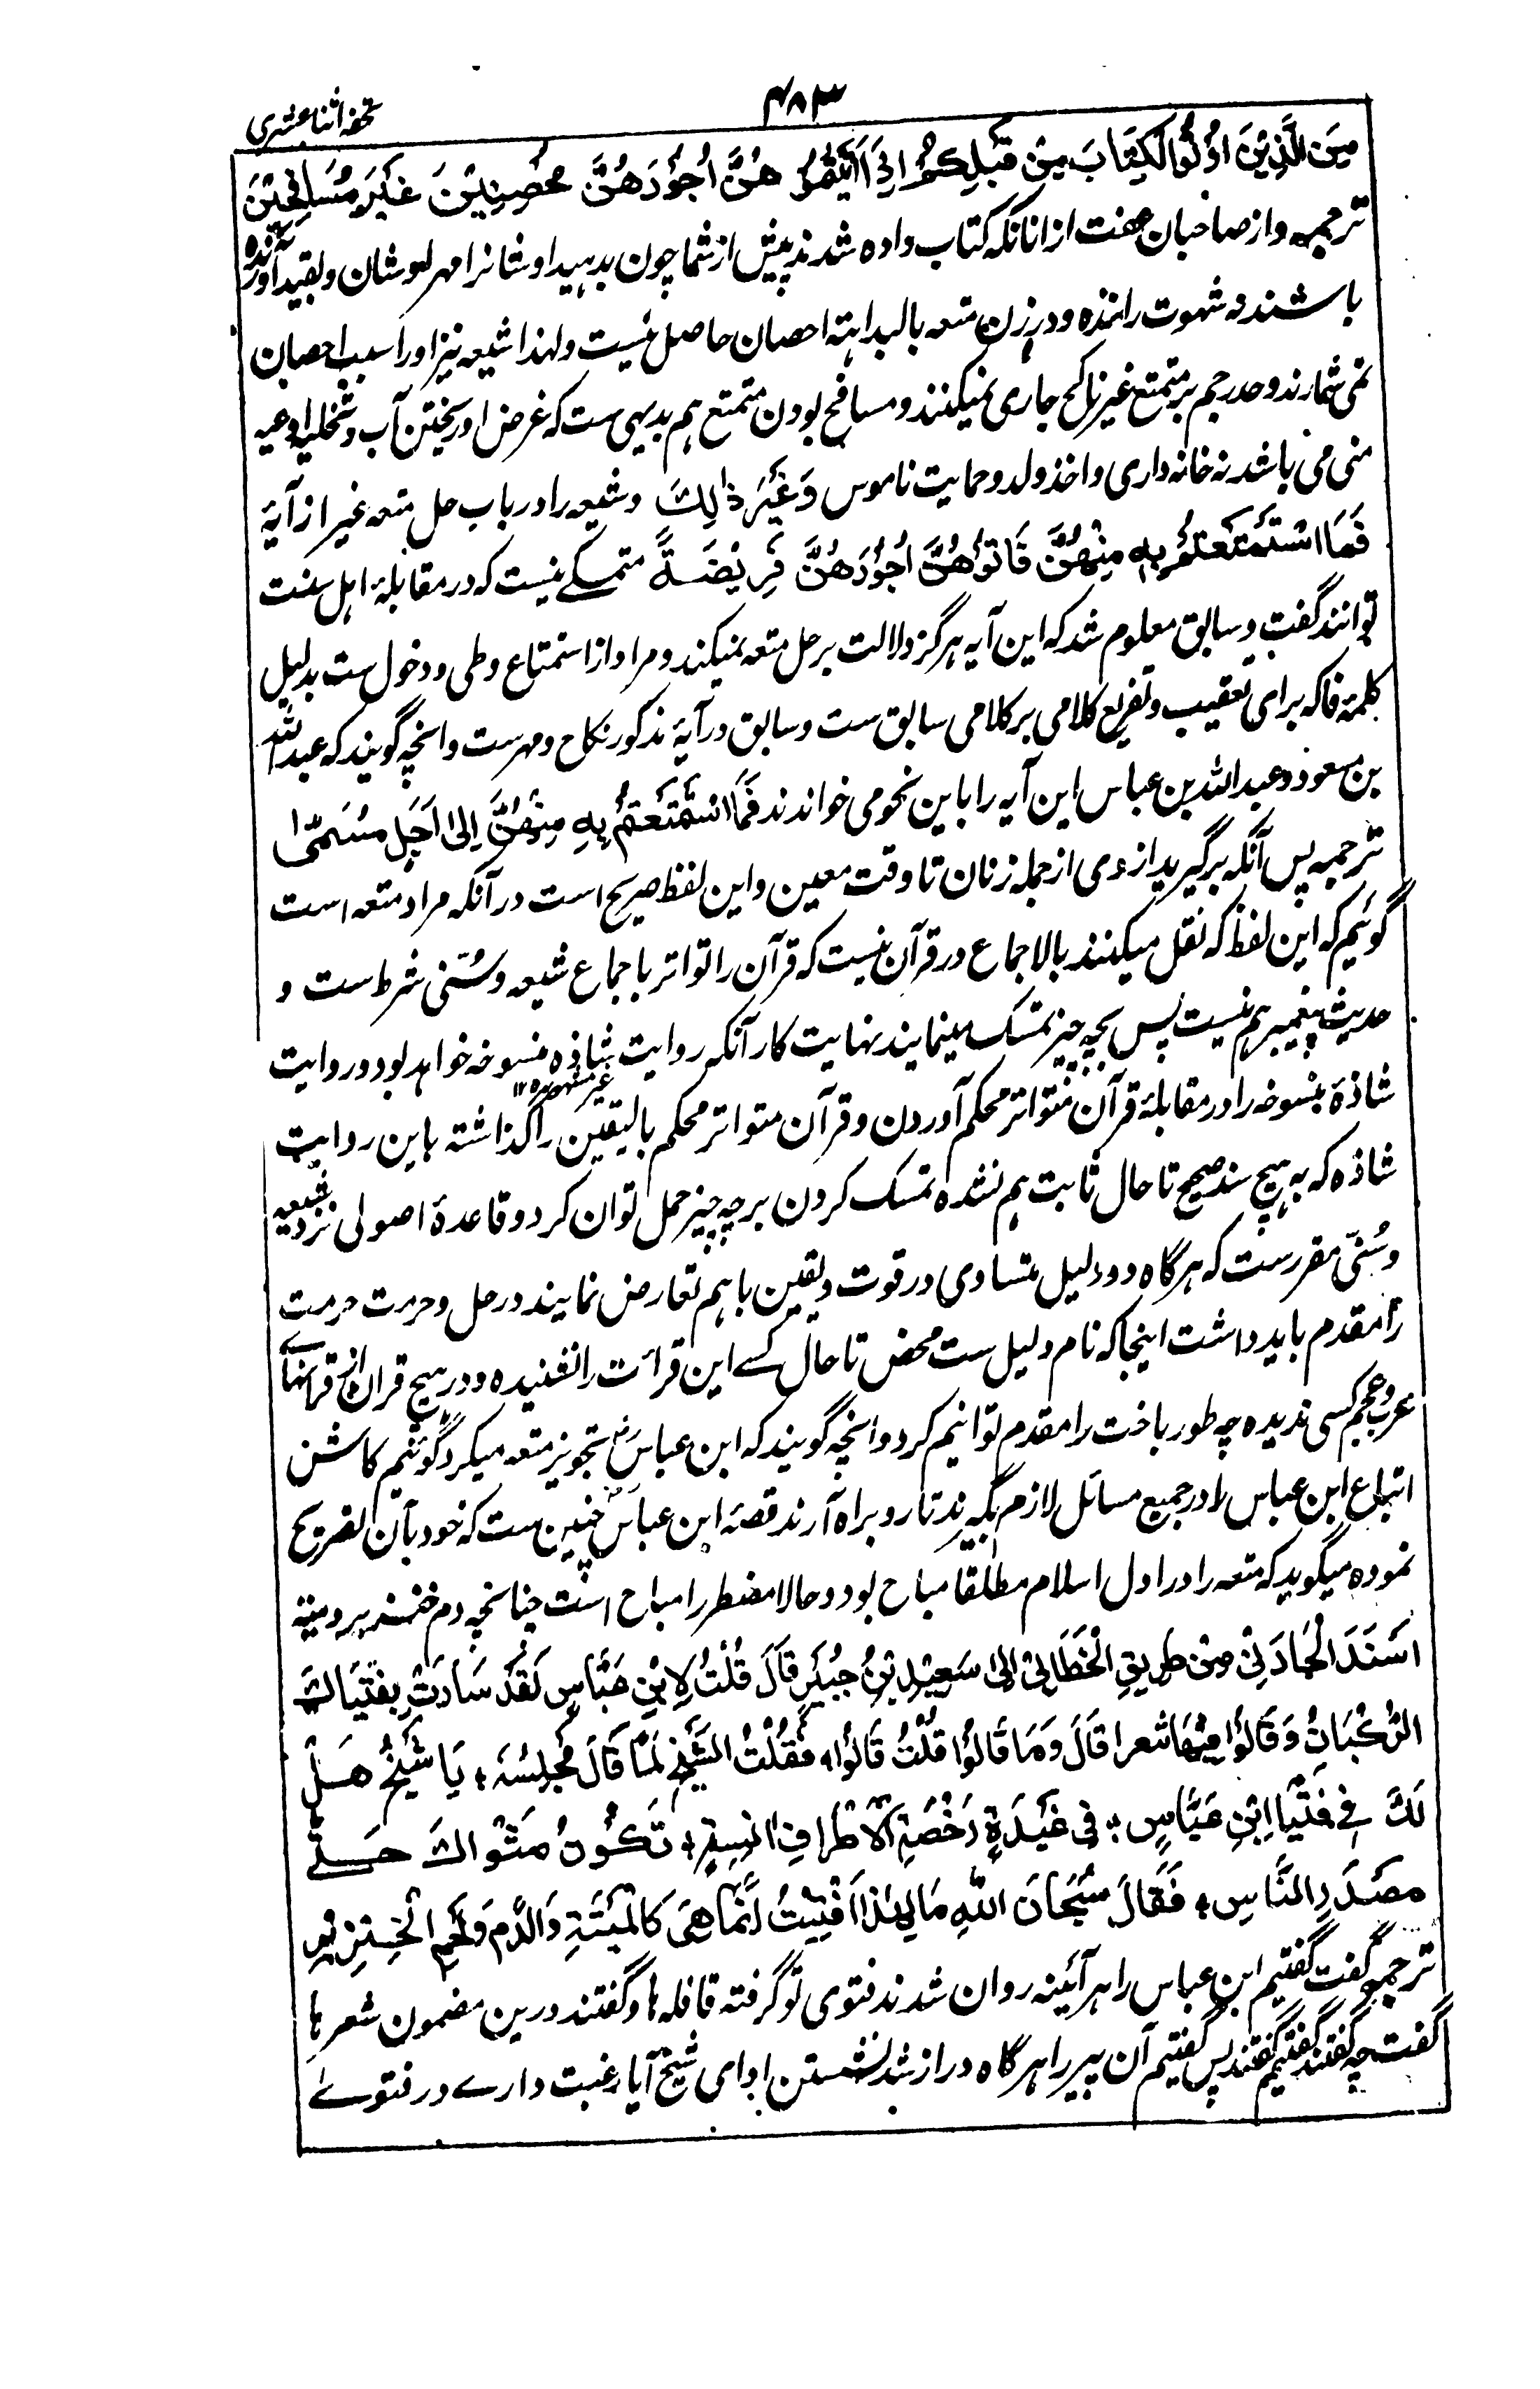 تحفه اثنا عشری
۴۸۳
مِنَ الَّذِيْنَ اُوْتُوا الْكِتَابَ مِنْ قَبْلِكُمْ اِذَا اٰتَيْتُمُوْ هُنَّ اُجُوْرَهُنَّ مُحْصِنِيْنَ غَيْرَ مُسَافِحِيْنَ
ترجمه واز صاحبان عفت از انانکه کتاب داده شدند پیش از شما چون بدهید اوشانرا مهر اوشان و بقید آورنده
باشند نه شهوت راننده و در زن متعه بالبداهته احصان حاصل نیست و لهذا شیعه نیز او را سبب احصان
نمی شمارند و حد رجم بر متمتع غیر ناکح جاری نمیکنند و مسافح بودن متمتع هم بدیهی ست که غرض او ریختن آب و تخلیه اوعیه
منی می باشد نه خانه داری و اخذ ولد و حمایت ناموس وَغَيْرَ ذٰلِكَ و شیعه را در باب حل متعه غیر از آیهٔ
فَمَا اسْتَمْتَعْتُمْ بِهٖ مِنْهُنَّ فَاٰتُوْهُنَّ اُجُوْرَهُنَّ فَرِيْضَةً متمسکے نیست که در مقابلهٔ اهل سنت
توانند گفت و سابق معلوم شد که این آیه هرگز دلالت بر حل متعه نمیکند و مراد از استمتاع وطی و دخول ست بدلیل
کلمهٔ فا که برای تعقیب و تفریع کلامی بر کلامی سابق ست و سابق در آیهٔ مذکور نکاح و مهرست و انچه گویند که عبدالله
بن مسعود و عبدالله بن عباس این آیه را باین نحو می خواندند فَمَا اسْتَمْتَعْتُمْ بِهٖ مِنْهُنَّ اِلیٰ اَجَلٍ مُسَمًّی
ترجمه پس آنکه برگیرید از وی از جمله زنان تا وقت معین و این لفظ صریح است در آنکه مراد متعه است
گوئیم که این لفظ که نقل میکنند بالاجماع در قرآن نیست که قرآن را تواتر باجماع شیعه و سُنّی شرط ست و
حدیث پیغمبر هم نیست پس بچه چیز تمسک مینمایند نهایت کار آنکه روایت شاذه منسوخه خواهد بود و روایت
غیر مشهوره ۱۱
شاذهٔ منسوخه را در مقابلهٔ قرآن متواتر محکم آوردن و قرآن متواتر محکم بالیقین را گذاشته باین روایت
شاذه که به هیچ سند صحیح تا حال ثابت هم نشده تمسک کردن بر چه چیز حمل توان کرد و قاعدهٔ اصولی نزد شیعه
و سُنّی مقررست که هرگاه دو دلیل متساوی در قوت و یقین باهم تعارض نمایند در حل و حرمت حرمت
را مقدم باید داشت اینجا که نام دلیل ست محض تا حال کسے این قرات را نشنیده و در هیچ قران از قرآنهاے
عرب و عجم کسی ندیده چه طور باحت را مقدم توانیم کرد و انچه گویند که ابن عباسؓ تجویز متعه میکرد گوئیم کاش
اتباع ابن عباس را در جمیع مسائل لازم بگیرند تا رو براه آرند قصهٔ ابن عباسؓ چنین ست که خود بآن تصریح
نموده میگوید که متعه را در اول اسلام مطلقا مباح بود و حالا مضطر را مباح است چنانچه دم خنزیر و میته
اَسْنَدَ الْحَازِمِيْ مِنْ طَرِيْقِ الْخَطَّابِيْ اِلیٰ سَعِيْدِ بْنُ جُبَيْرٍ قَالَ قُلْتُ لِاِبْنِ عَبَّاسٍ لَقَدْ سَارَتْ بِفُتْيَاكَ
الرُّكْبَانُ وَقَالُوْا فِيْهَا شعرا قَالَ وَمَا قَالُوْا قُلْتُ قَالُوْا؛ فَقُلْتُ الشَّيْخِ لَمَّا قَالَ مَجْلِسُهٗ؛ يَا شَيْخُ هَلْ
لَكَ فِيْ فُتْيَا اِبْنِ عَبَّاسٍ؛ فِيْ غَيْدَةٍ رَخْصَةِ الْاَطْرَافِ اٰنِسَةٍ؛ تَكُوْنُ مَثْوَاكَ حَتّٰے
مَصْدَرِ النَّاسِ؛ فَقَالَ سُبْحَانَ اللّٰهِ مَا بِهٰذَا اَفْتَيْتُ اِنَّمَا هِيَ كَالْمَيْتَةِ وَالدَّمِ وَلَحْمِ الْخِنْزِيْرِ
ترجمه گفت گفتیم ابن عباس را هر آئینه روان شدند فتوی تو گرفته قافله ها و گفتند درین مضمون شعر ها
گفت چه گفتند گفتیم گفتند پس گفتیم آن پیر را هرگاه دراز شد نشستن او ای شیخ آیا رغبت دارے در فتوے